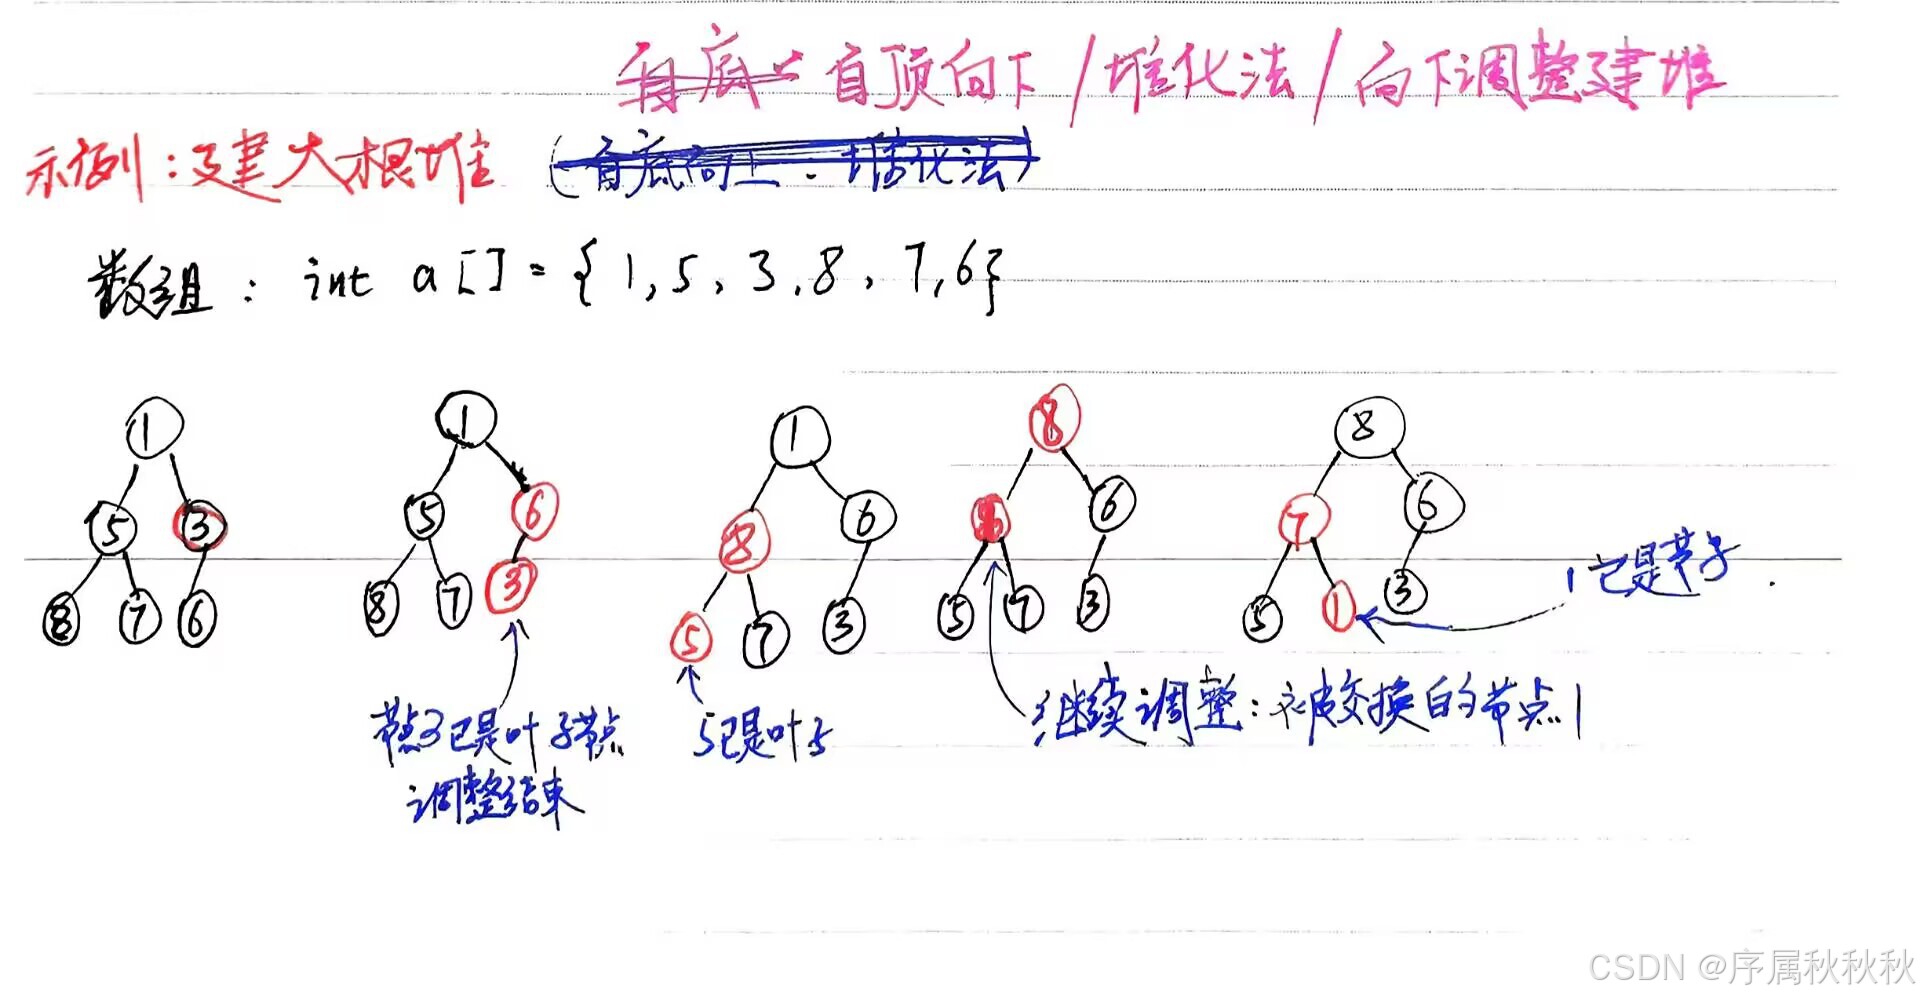 自底 自顶向下/堆化法/向下调整建堆
示例:建大根堆 (自底向上:堆化法)
数组: int a[]={1,5,3,8,7,6}
1 1 1 8 8
5 3 5 6 8 6 6 7 6
8 7 6 8 7 3 5 7 3 5 7 3 5 1 3
1已是叶子.
节点3已是叶子节点
调整结束
5已是叶子
继续调整:被交换的节点1
CSDN @序属秋秋秋